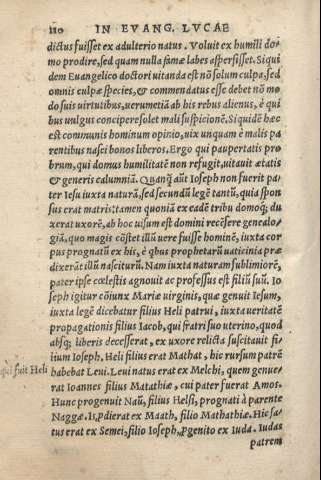 110 IN EVANG. LVCAE
dictus fuisset ex adulterio natus. Voluit ex humili do-
mo prodire, sed quam nulla famæ labes aspersisset. Siqui
dem Euangelico doctori uitanda est nō solum culpa, sed
omnis culpæ species, & commendatus esse debet nō mo
do suis uirtutibus, uerumetiā ab his rebus alienus, è qui
bus uulgus concipere solet mali suspicionē. Siquidē hæc
est communis hominum opinio, uix unquam è malis pa
rentibus nasci bonos liberos. Ergo qui paupertatis pro
brum, qui domus humilitatē non refugit, uitauit ætatis
& generis calumniā. Quanq̄ aūt Ioseph non fuerit pa/
ter Iesu iuxta naturā, sed secundū legē tantū, quia spon
sus erat matris: tamen quoniā ex eadē tribu domoq; du
xerat uxorē, ab hoc uisum est domini recēsere genealo/
giā, quo magis cōstet illū uere fuisse hominē, iuxta cor
pus prognatū ex his, è qbus prophetarū uaticinia præ
dixerāt illū nasciturū. Nam iuxta naturam sublimiorē,
pater ipse cœlestis agnouit ac professus est filiū suū. Io
seph igitur cōiunx Mariæ uirginis, quæ genuit Iesum,
iuxta legē dicebatur filius Heli patrui, iuxta ueritatē
propagationis filius Iacob, qui fratri suo uterino, quod
absq; liberis decesserat, ex uxore relicta suscitauit fi-
lium Ioseph. Heli filius erat Mathat, hic rursum patrē
qui fuit Heli
habebat Leui. Leui natus erat ex Melchi, quem genue/
rat Ioannes filius Matathiæ, cui pater fuerat Amos.
Hunc progenuit Naū, filius Helsi, prognati à parente
Naggæ. Is, pdierat ex Maath, filio Mathathiæ. Hic sa/
tus erat ex Semei, filio Ioseph, pgenito ex Iuda. Iudas
patrem